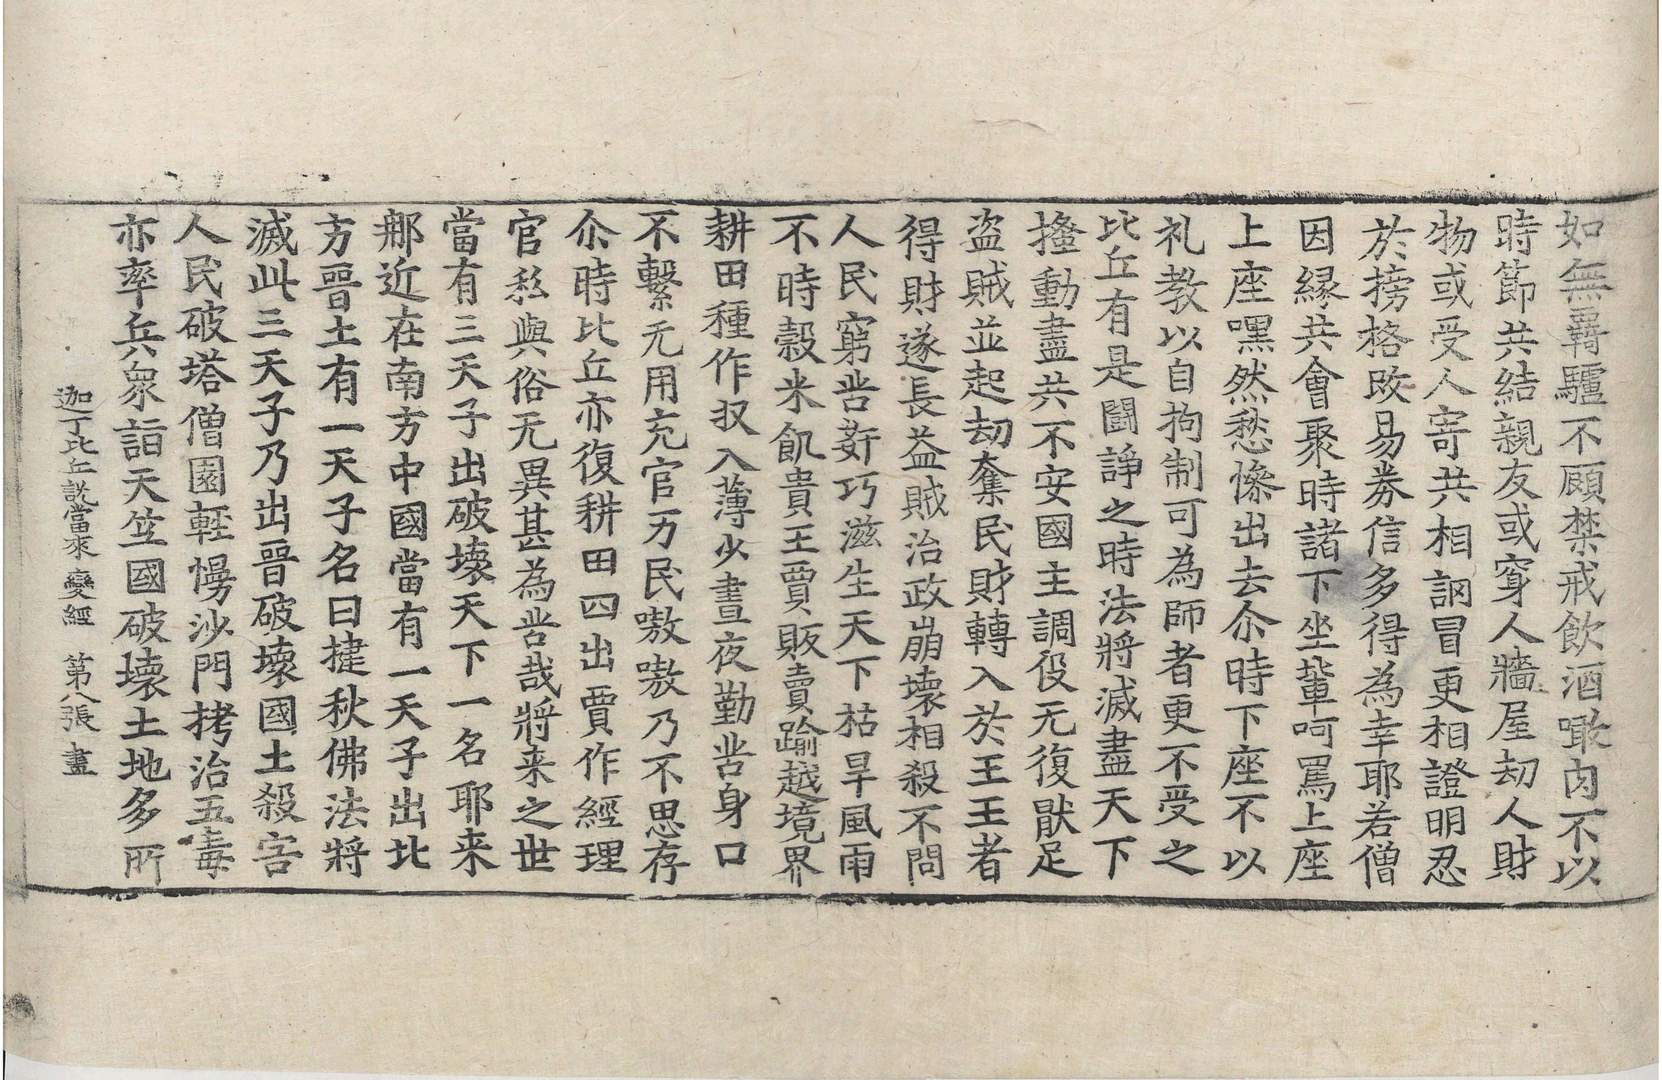 如無羇驢不顧禁戒飲酒噉肉不以
時節共結親友或穿人牆屋劫人財
物或受人寄共相誷冒更相證明忍
於搒格改易券信多得為幸耶若僧
因縁共會聚時諸下坐輩呵罵上座
上座嘿然愁慘出去尒時下座不以
礼教以自拘制可為師者更不受之
比丘有是鬪諍之時法將滅盡天下
搔動盡共不安國主調役无復猒足
盗賊並起劫奪民財轉入於王王者
得財遂長益賊治政崩壞相殺不問
人民窮苦姧巧滋生天下枯旱風雨
不時穀米飢貴王賈販賣踰越境界
耕田種作収入薄少晝夜勤苦身口
不繫无用充官万民嗷嗷乃不思存
尒時比丘亦復耕田四出賈作經理
官私與俗无異甚為苦哉將来之世
當有三天子出破壞天下一名耶来
鄰近在南方中國當有一天子出北
方晉土有一天子名曰揵秋佛法將
滅此三天子乃出晉破壞國土殺害
人民破塔僧園輕慢沙門拷治五毒
亦率兵衆詣天竺國破壞土地多所
迦丁比丘說當來變經　第八張　畫